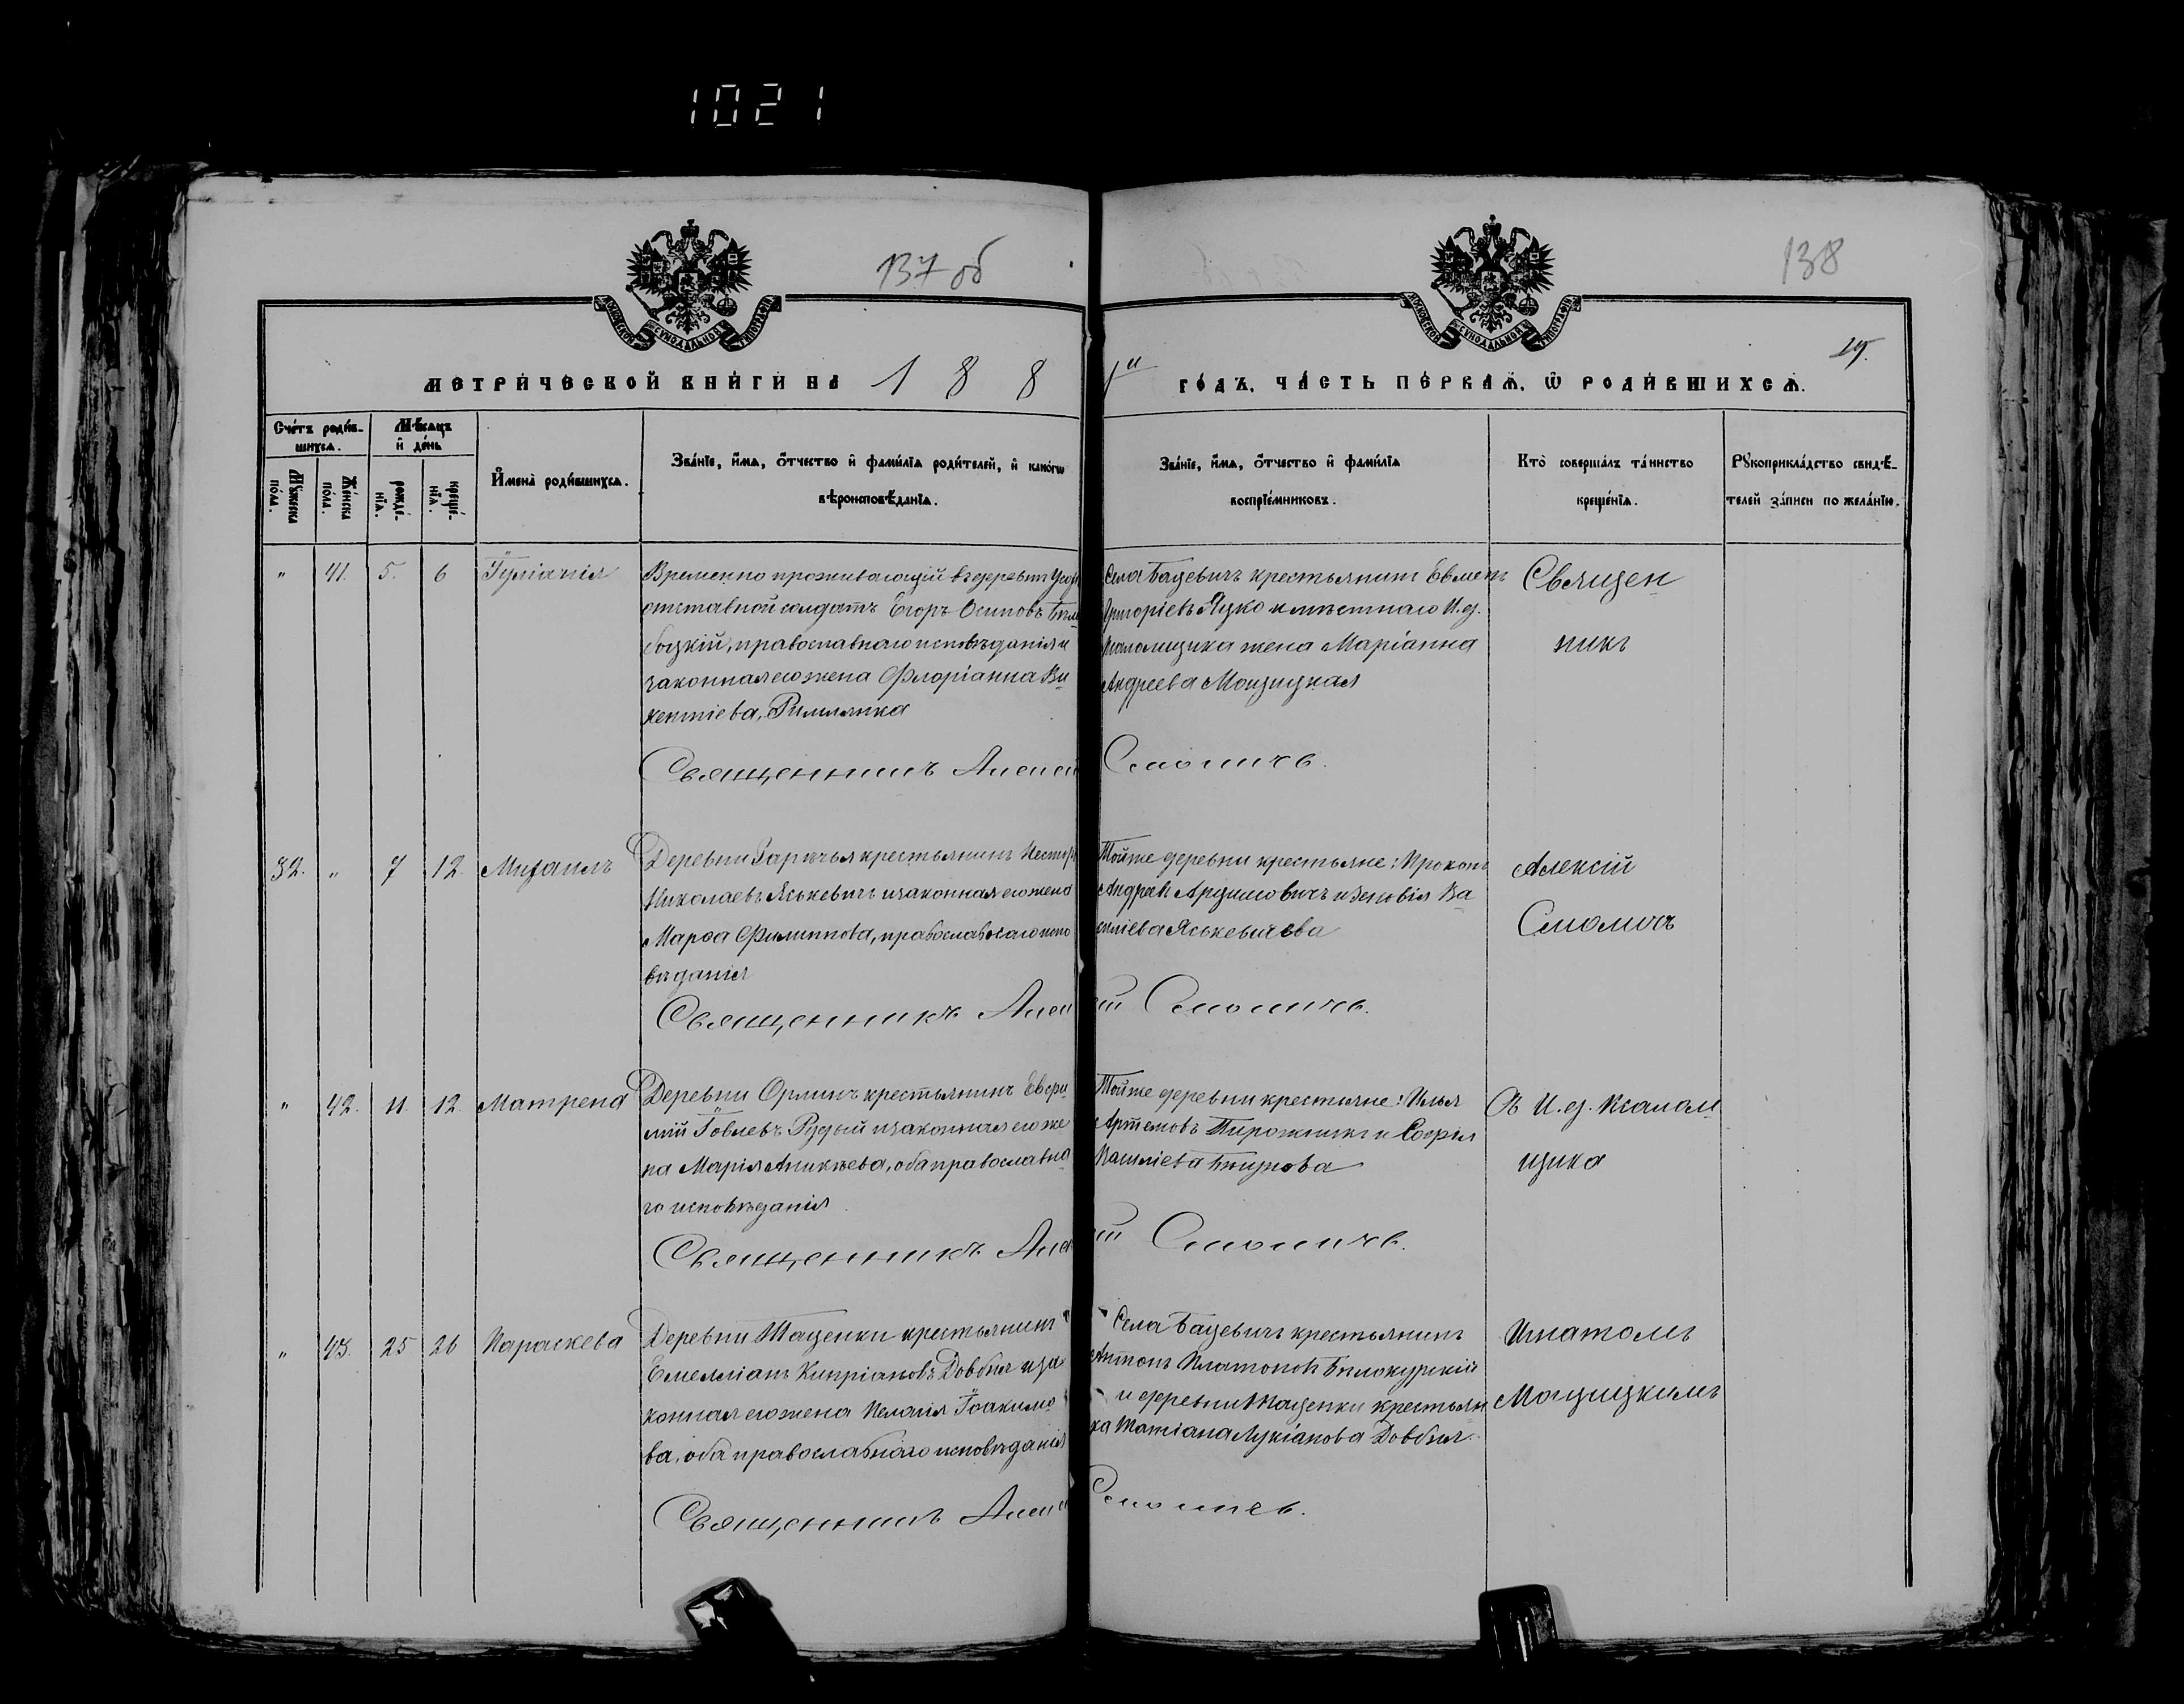 1021
137 об
138
19.
МЕТРИЧЕСКОЙ КНИГИ НА 188
ГОДЪ, ЧАСТЬ ПЕРВАЯ, Ѡ РОДИВШИХСЯ.
Счетъ родив-
шихся.
Мѣсяцъ
и день
Мужеска
пола.
Женска
пола.
рожде-
нія.
креще-
нія.
Имена родившихся.
Званіе, имя, отчество и фамилія родителей, и какогѡ
вѣроисповѣданія.
Званіе, имя, отчество и фамилія
воспріемниковъ.
Кто совершалъ таинство
крещенія.
Рукоприкладство свидѣ-
телей записи по желанію.
" 41. 5. 6 Іуліанія
Временно проживающій въ деревнѣ
отставной солдатъ Егоръ Осиповъ
боцкій, православнаго исповѣданія и
законная его жена Флоріанна Ви
кентіева, Римлянка
Села Бацевичъ крестьянинъ Евмен
Григоріевъ Яцко и мѣстнаго И. д.
псаломщика жена Маріанна
Андреева Мощицкая
Священ
никъ
Священникъ Алексій
Смоличъ.
32. " 7 12. Михаилъ
Деревни Зарѣчья крестьянинъ Несторъ
Николаевъ Яськевичъ и законная его жена
Марѳа Филиппова, православнаго испо
вѣданія
Тойже деревни крестьяне: Прокопъ
Андреевъ и Зиновія Ва
силіева Яськевичева
Алексій
Смоличъ
Священникъ Алексій
Смоличъ.
" 42. 11. 12. Матрена
Деревни Орлинъ крестьянинъ Евфи
мій Іовлевъ Рудый и законная его же
на Марія Аникѣева, оба православна
го исповѣданія
Тойже деревни крестьяне: Илья
Артемовъ Пирожникъ и Софія
Василіева
Съ И. д. псалом
щика
Священникъ Алексій
Смоличъ.
" 43. 25 26 Параскева
Деревни Тащенки крестьянинъ
Емелліанъ Кипріановъ Довбня и за
конная его жена Пелагія Іоакимо
ва, оба православнаго исповѣданія
Села Бацевичъ крестьянинъ
Антонъ Платоновъ Бѣлокурскій
и деревни Тащенки крестьян
ка Татіана Лукіанова Довбня.
Игнатомъ
Мощицкимъ
Священникъ Алексій
Смоличъ.